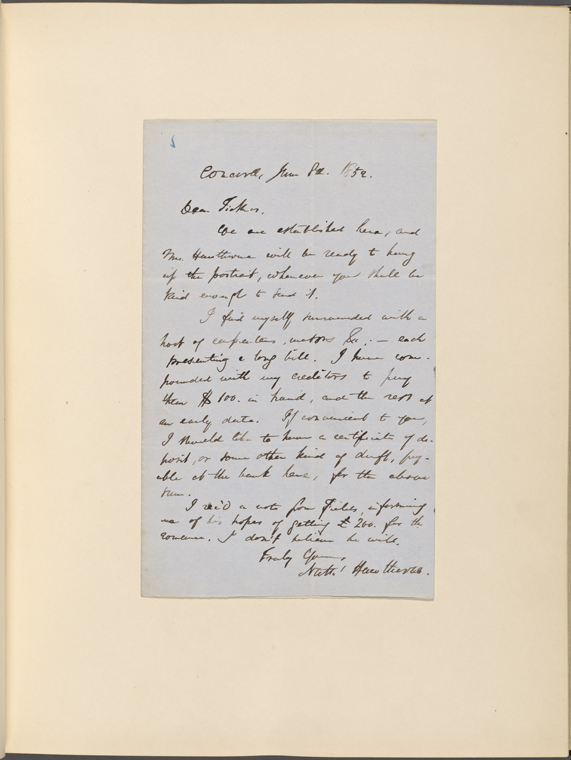 Concord, June 8th. 1852.
Dear Ticknor,
We are established here, and
Mrs. Hawthorne will be ready to hang
up the portrait, whenever you shall be
kind enough to send it.
I find myself surrounded with a
host of carpenters, &c.; — each
presenting a long bill. I have com-
pounded with my creditors to pay
them $100. in hand, and the rest at
an early date. If convenient to you,
I should like to have a certificate of de-
posit, or some other kind of draft, pay-
able at the bank here, for the above
sum.
I rec'd a note from Fields, informing
me of his hopes of getting £200. for the
romance. I don't believe he will.
Truly Yours,
Nathl Hawthorne.